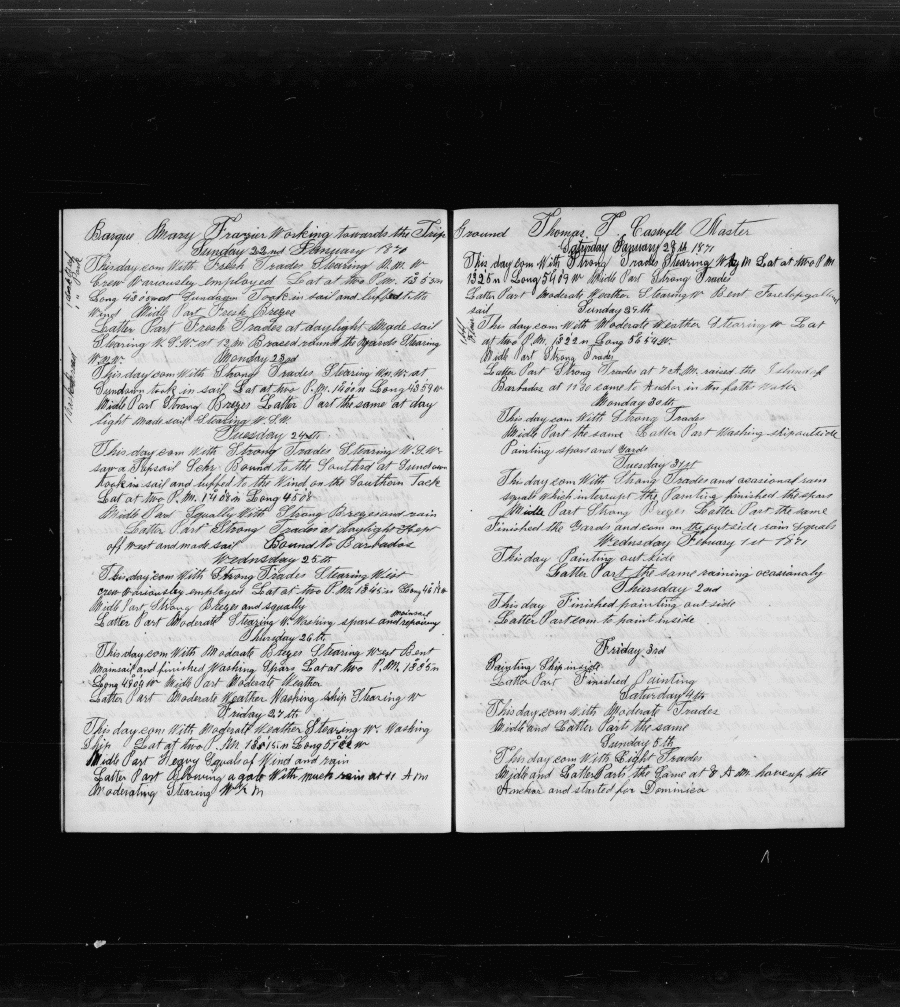 Barque Mary Frazier Working towards the
Sunday 22nd 1871
This day com With Fresh Trades Stearing W.
Crew Variousley employed Lat at two P.M.
Long at Sundown Took in sail and luffed to the
Wind Midle Part Fresh Brezes
Latter Part Fresh Trades at daylight Made sail
Stearing W.S.W. at 12 M Brased round the yards Stearing
W.N.W. Monday 23rd
This day com With Strong Trades Stearing at
Sundown took in sail Lat at two P.M. 14 in Long 4359 W
Midle Part Strong Brezes Latter Part the same at day
light made sail Stearing W.S.W.
Tuesday 24th
This day com With Strong Trades Stearing W.S.W.
saw a Topsail Schr Bound to the Southerd at Sundown
took in sail and luffed to the Wind on the Southern Tack
Lat at two P.M. 1408 n Long 4508
Midle Part Squally With Strong Brezes and rain
Latter Part Strong Trades at daylight Kept
off West and made sail Bound to Barbados
Wednesday 25th
This day com With Strong Trades Stearing West
crew Variousley employed Lat at two P.M. 1345 n Long
Midle Part Strong Brezes and squally
mainsail
Latter Part Moderate Stearing W. Washing spars and repairing
Thursday 26th
This day com With Moderate Brezes Stearing West Bent
mainsail and finished Washing Spars Lat at two P.M.
Long W Midle Part Moderate Weather
Latter Part Moderate Weather Washing ship Stearing W
Friday 27th
This day com With Moderate Weather Stearing W. Washing
Ship Lat at two P.M. n Long W
Midle Part Heavy Squals of Wind and rain
Latter Part Blowing a gale With much rain at 11 A M
Moderating Stearing W by N
Ground Thomas F. Caswell Master
Saturday January 28th 1871
This day com With Strong Trades Stearing W by N Lat at two P.M.
1326 n Long 5419 W Midle Part Strong Trades
Latter Part Moderate Weather Stearing W Bent Foretopgallant
sail Sunday 29th
This day com With Moderate Weather Stearing W Lat
at two P.M. 1322 n Long 5654 W
Midle Part Strong Trades
Latter Part Strong Trades at 7 A.M. raised the Island of
Barbados at 11.30 come to Anchor in ten fathoms water
Monday 30th
This day com With Strong Trades
Midle Part the same Latter Part Washing ship outside
Painting spars and Yards
Tuesday 31st
This day com With Strong Trades and ocasional rain
squal Which interrupt the Painting finished the spars
Midle Part Strong Brezes Latter Part the same
Finished the Yards and com on the out side rain Squals
Wednesday Febuary 1st 1871
This day Painting out side
Latter Part the same raining ocasionaly
Thursday 2nd
This day Finished painting out side
Latter Part com to paint inside
Friday 3rd
Painting Ship inside
Latter Part Finished Painting
Saturday 4th
This day com With Moderate Trades
Midle and Latter Parts the same
Sunday 5th
This day com With Light Trades
Midle and Latter Parts the Same at 8 A M. hove up the
Anchor and started for Dominica